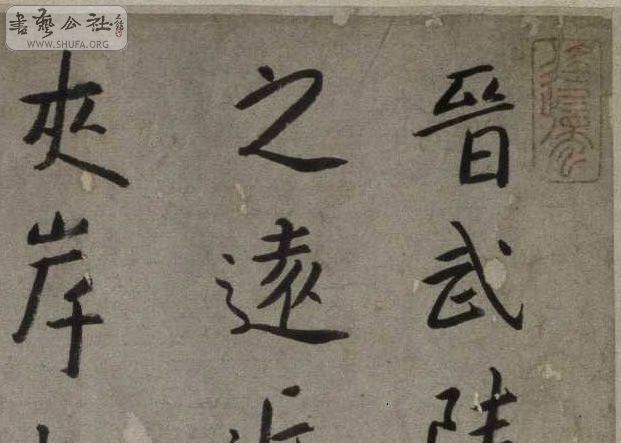 晉武
之遠
夾岸
書藝公社
WWW.SHUFA.ORG